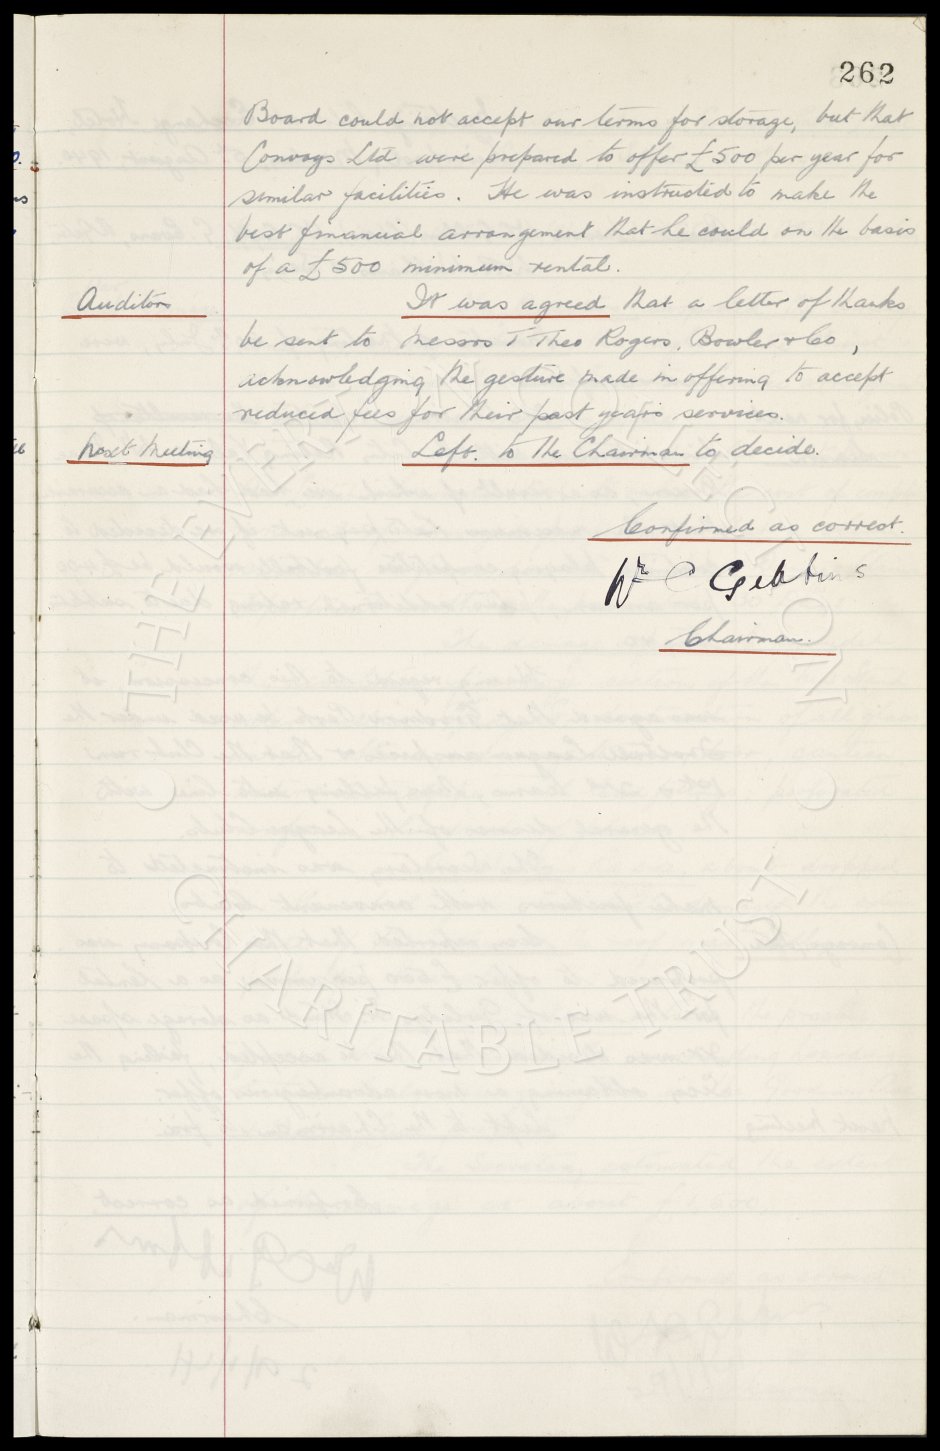 262
Board could not accept our terms for storage, but that
Convoys Ltd were prepared to offer £500 per year for
similar facilities. He was instructed to make the
best financial arrangement that he could on the basis
of a £500 minimum rental.
Auditors It was agreed that a letter of thanks
be sent to Messrs T Theo Rogers, Bowler & Co,
acknowledging the gesture made in offering to accept
reduced fees for their past year's services.
Next Meeting Left to the Chairman to decide.
Confirmed as correct.
Wm C Gibbins
Chairman.
THE EVERTON COLLECTION
CHARITABLE TRUST